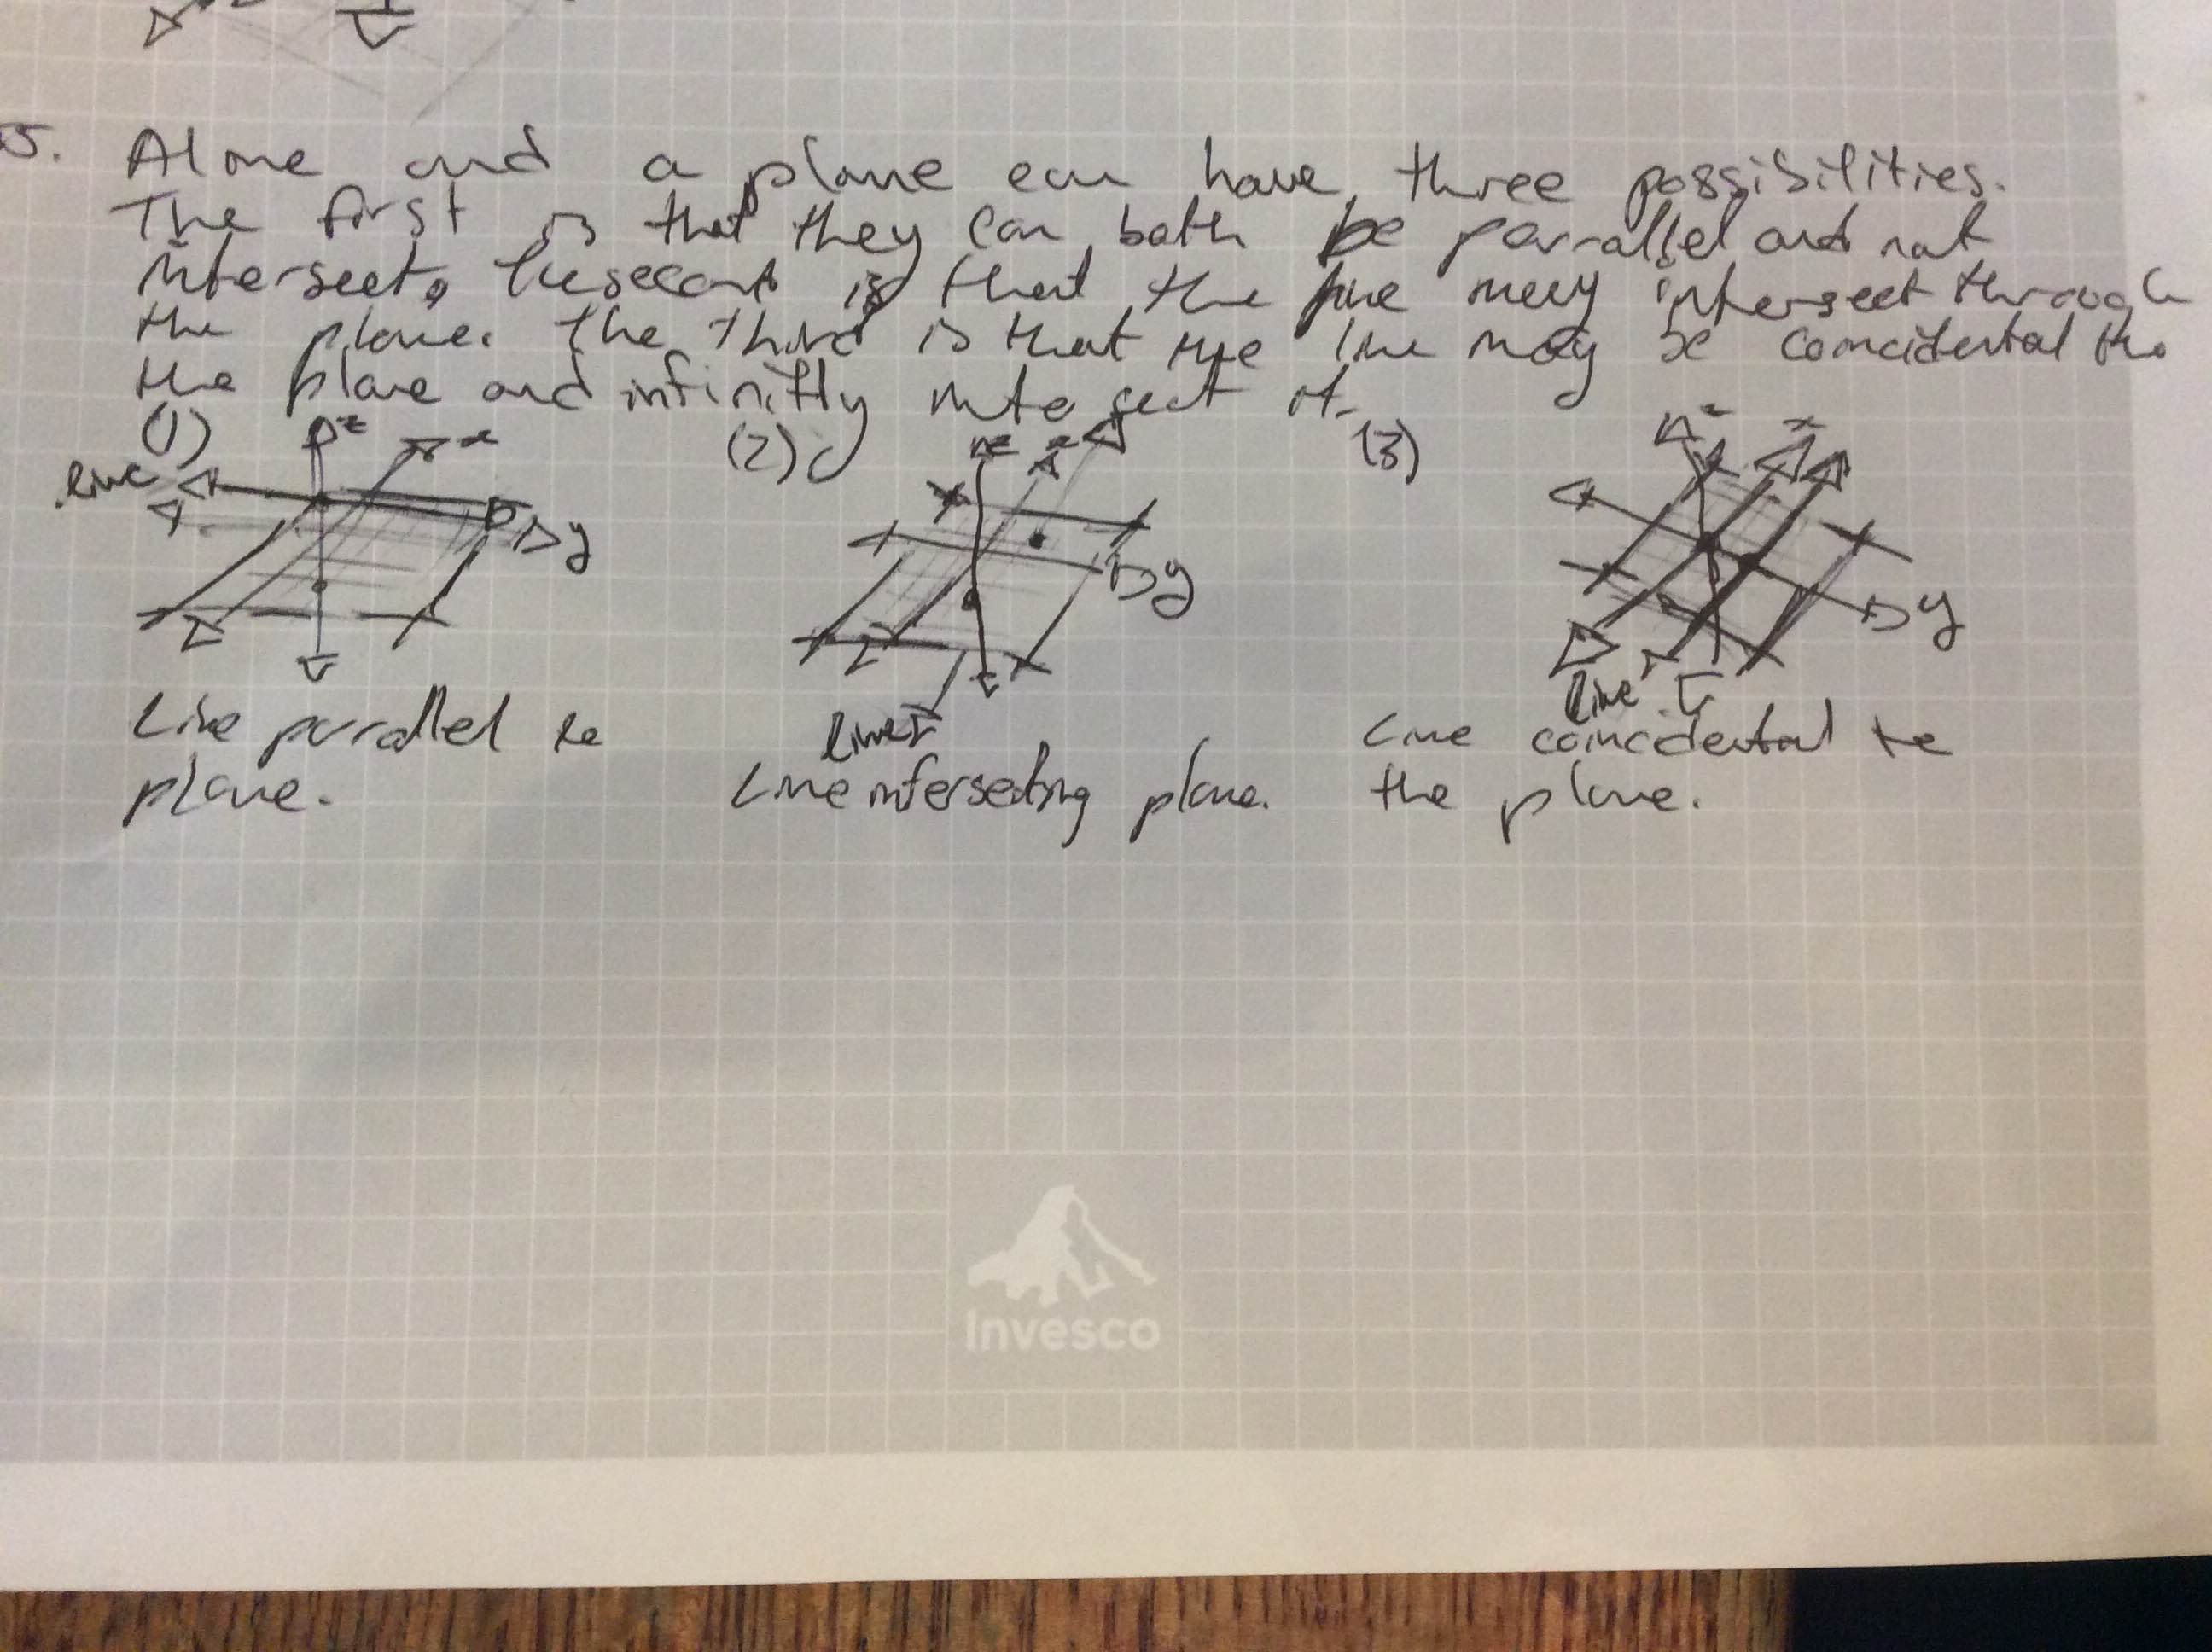 5. A line and a plane can have three possibilities.
The first is that they can both be parrallel and not
intersect. The second is that the line may intersect through
the plane. The third is that the line may be coincidental to
the plane and infinitly intersect it.
(1) z x (2) z x (3) z x
line y y y
line line
Line parrallel to Line coincidental to
plane. Line intersecting plane. the plane.
Invesco